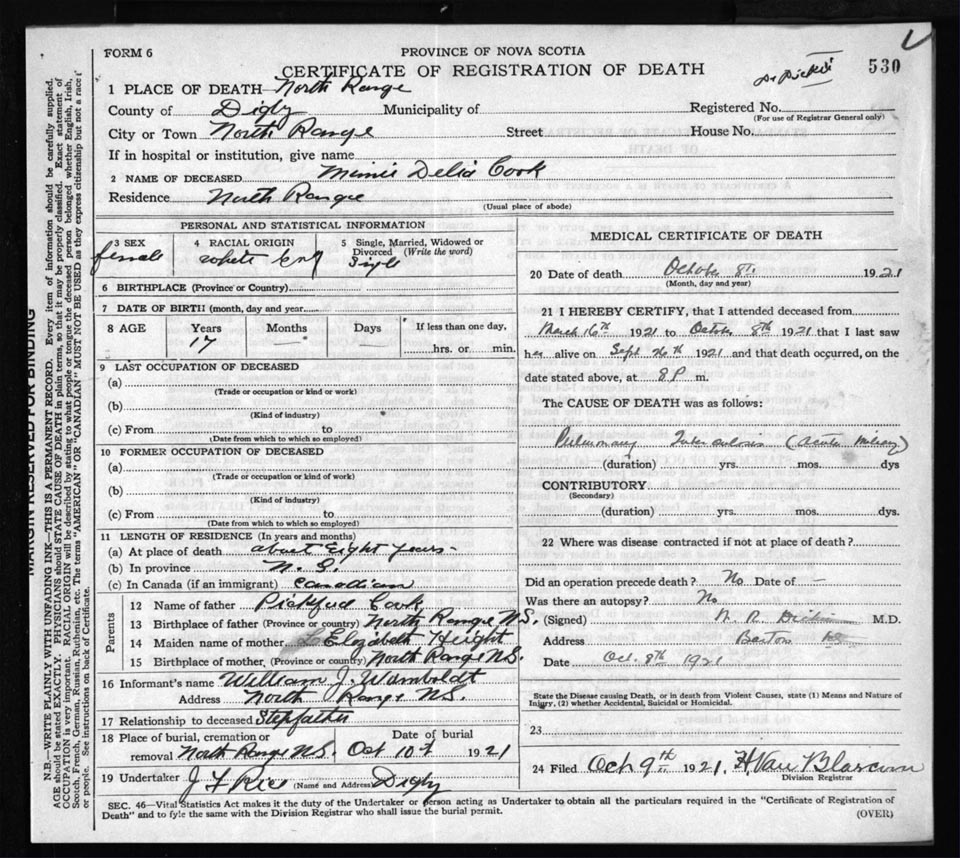 FORM 6
PROVINCE OF NOVA SCOTIA
CERTIFICATE OF REGISTRATION OF DEATH
530
1 PLACE OF DEATH North Range
County of Digby Municipality of
Registered No.
(For use of Registrar General only)
City or Town North Range Street House No.
If in hospital or institution, give name
2 NAME OF DECEASED Minnie Delia Cook
Residence North Range
(Usual place of abode)
PERSONAL AND STATISTICAL INFORMATION
3 SEX
female
4 RACIAL ORIGIN
white Eng
5 Single, Married, Widowed or Divorced (Write the word)
Single
6 BIRTHPLACE (Province or Country)
7 DATE OF BIRTH (month, day and year
8 AGE Years Months Days If less than one day,
17 hrs. or min.
9 LAST OCCUPATION OF DECEASED
(a)
(Trade or occupation or kind or work)
(b)
(Kind of industry)
(c) From to
(Date from which to which so employed)
10 FORMER OCCUPATION OF DECEASED
(a)
(Trade or occupation or kind of work)
(b)
(Kind of industry)
(c) From to
(Date from which to which so employed)
11 LENGTH OF RESIDENCE (In years and months)
(a) At place of death about Eight years
(b) In province N. S.
(c) In Canada (if an immigrant) Canadian
Parents
12 Name of father Pickford Cook
13 Birthplace of father (Province or country) North Range N.S.
14 Maiden name of mother Elizabeth Height
15 Birthplace of mother (Province or country) North Range N.S.
16 Informant's name William J. Wamboldt
Address North Range N.S.
17 Relationship to deceased Stepfather
18 Place of burial, cremation or removal North Range N.S.
Date of burial
Oct 10th 1921
19 Undertaker J F Rice (Name and Address) Digby
MEDICAL CERTIFICATE OF DEATH
20 Date of death October 8th 1921
(Month, day and year)
21 I HEREBY CERTIFY, that I attended deceased from
March 16th 1921 to October 8th 1921 that I last saw
her alive on Sept 26th 1921 and that death occurred, on the
date stated above, at 8 P m.
The CAUSE OF DEATH was as follows:
Pulmonary Tuberculosis (acute miliary)
(duration) yrs. mos. dys
CONTRIBUTORY
(Secondary)
(duration) yrs. mos. dys.
22 Where was disease contracted if not at place of death?
Did an operation precede death? No Date of —
Was there an autopsy? No
(Signed) M.D.
Address
Date Oct. 8th 1921
State the Disease causing Death, or in death from Violent Causes, state (1) Means and Nature of
Injury, (2) whether Accidental, Suicidal or Homicidal.
23
24 Filed Oct 9th 1921. H Van Blarcom
Division Registrar
SEC. 46—Vital Statistics Act makes it the duty of the Undertaker or person acting as Undertaker to obtain all the particulars required in the "Certificate of Registration of
Death" and to fyle the same with the Division Registrar who shall issue the burial permit.
(OVER)
MARGIN RESERVED FOR BINDING
N.B.—WRITE PLAINLY WITH UNFADING INK—THIS IS A PERMANENT RECORD. Every item of information should be carefully supplied.
AGE should be stated EXACTLY. PHYSICIANS should STATE CAUSE OF DEATH in plain terms, so that it may be properly classified. Exact statement of
OCCUPATION is very important. RACIAL ORIGIN will be described by stating to what people or tongue the deceased person belonged whether English, Irish,
Scotch, French, German, Russian, Ruthenian, etc. The terms "AMERICAN" OR "CANADIAN" MUST NOT BE USED as they express citizenship but not a race
or people. See instructions on back of Certificate.